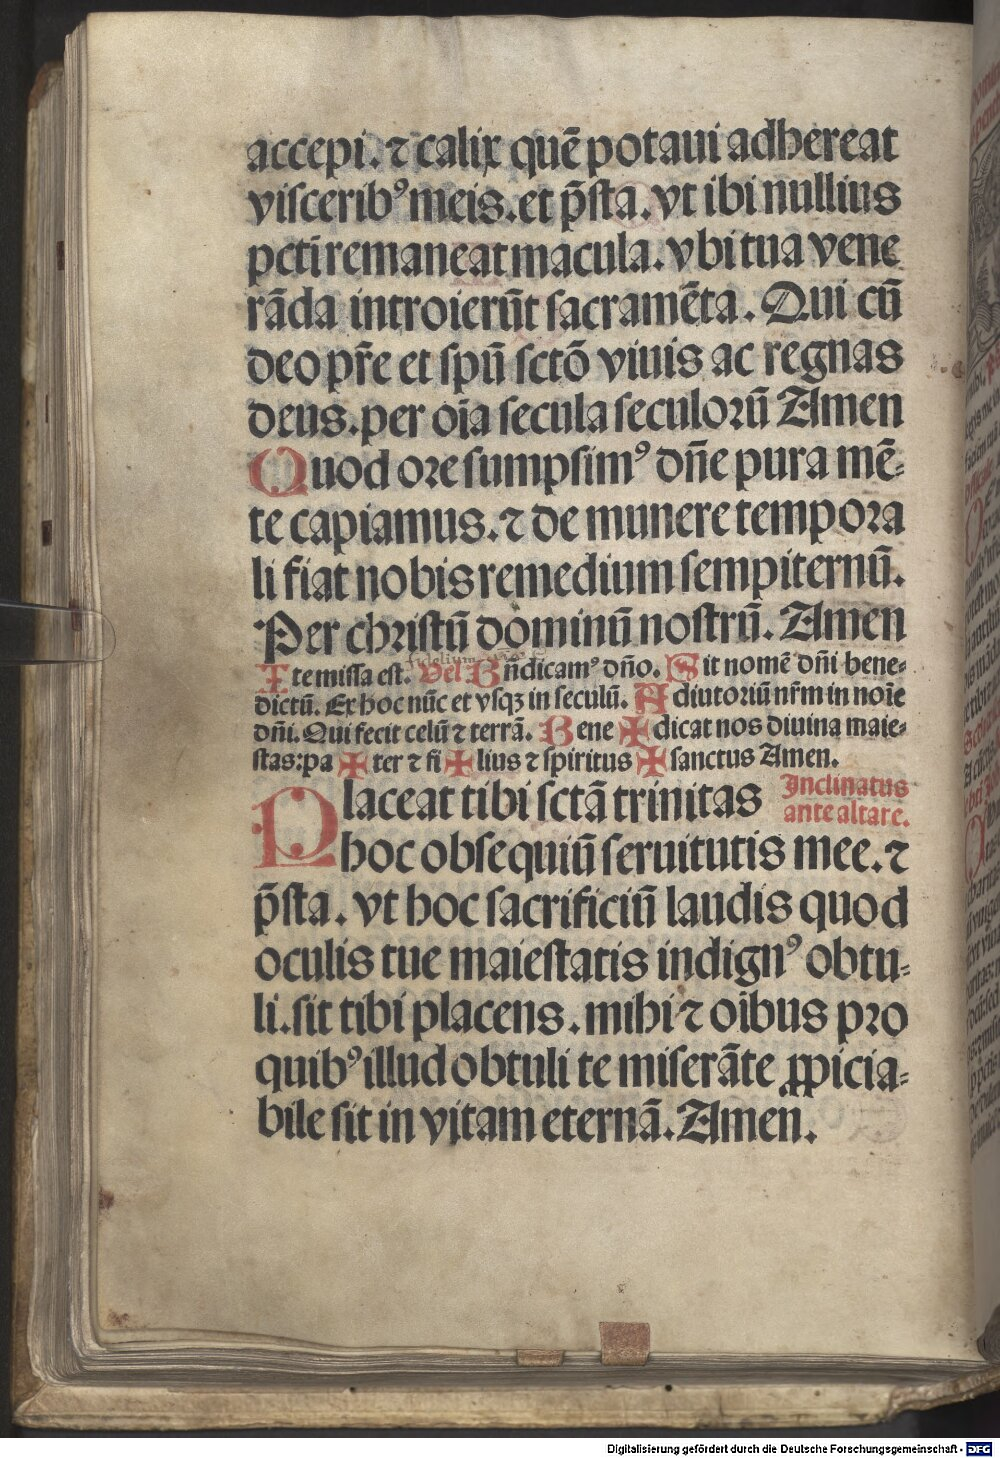 accepi. ⁊ calix quē potaui adhereat
viscerib⁹ meis. et p̄sta. vt ibi nullius
pctī remaneat macula. vbi tua vene
rāda introierūt sacramēta. Qui cū
deo pr̄e et spū sctō viuis ac regnas
deus. per oīa secula seculoꝛū Amen
Quod oꝛe sumpsim⁹ dn̄e pura mē-
te capiamus. ⁊ de munere tempoꝛa
li fiat nobis remedium sempiternū.
Per chꝛistū dominū nostrū. Amen
Ite missa est. Vel Bn̄dicam⁹ dn̄o. Sit nomē dn̄i bene-
dictū. Ex hoc nūc et vsqꝫ in seculū. Adiutoꝛiū nr̄m in noīe
dn̄i. Qui fecit celū ⁊ terrā. Bene ✠ dicat nos diuina maie-
stas: pa ✠ ter ⁊ fi ✠ lius ⁊ spiritus ✠ sanctus Amen.
Placeat tibi sctā trinitas Inclinatus
ante altare.
hoc obsequiū seruitutis mee. ⁊
p̄sta. vt hoc sacrificiū laudis quod
oculis tue maiestatis indign⁹ obtu-
li. sit tibi placens. mihi ⁊ oībus pꝛo
quib⁹ illud obtuli te miserāte ꝓpicia-
bile sit in vitam eternā. Amen.
Digitalisierung gefördert durch die Deutsche Forschungsgemeinschaft - DFG